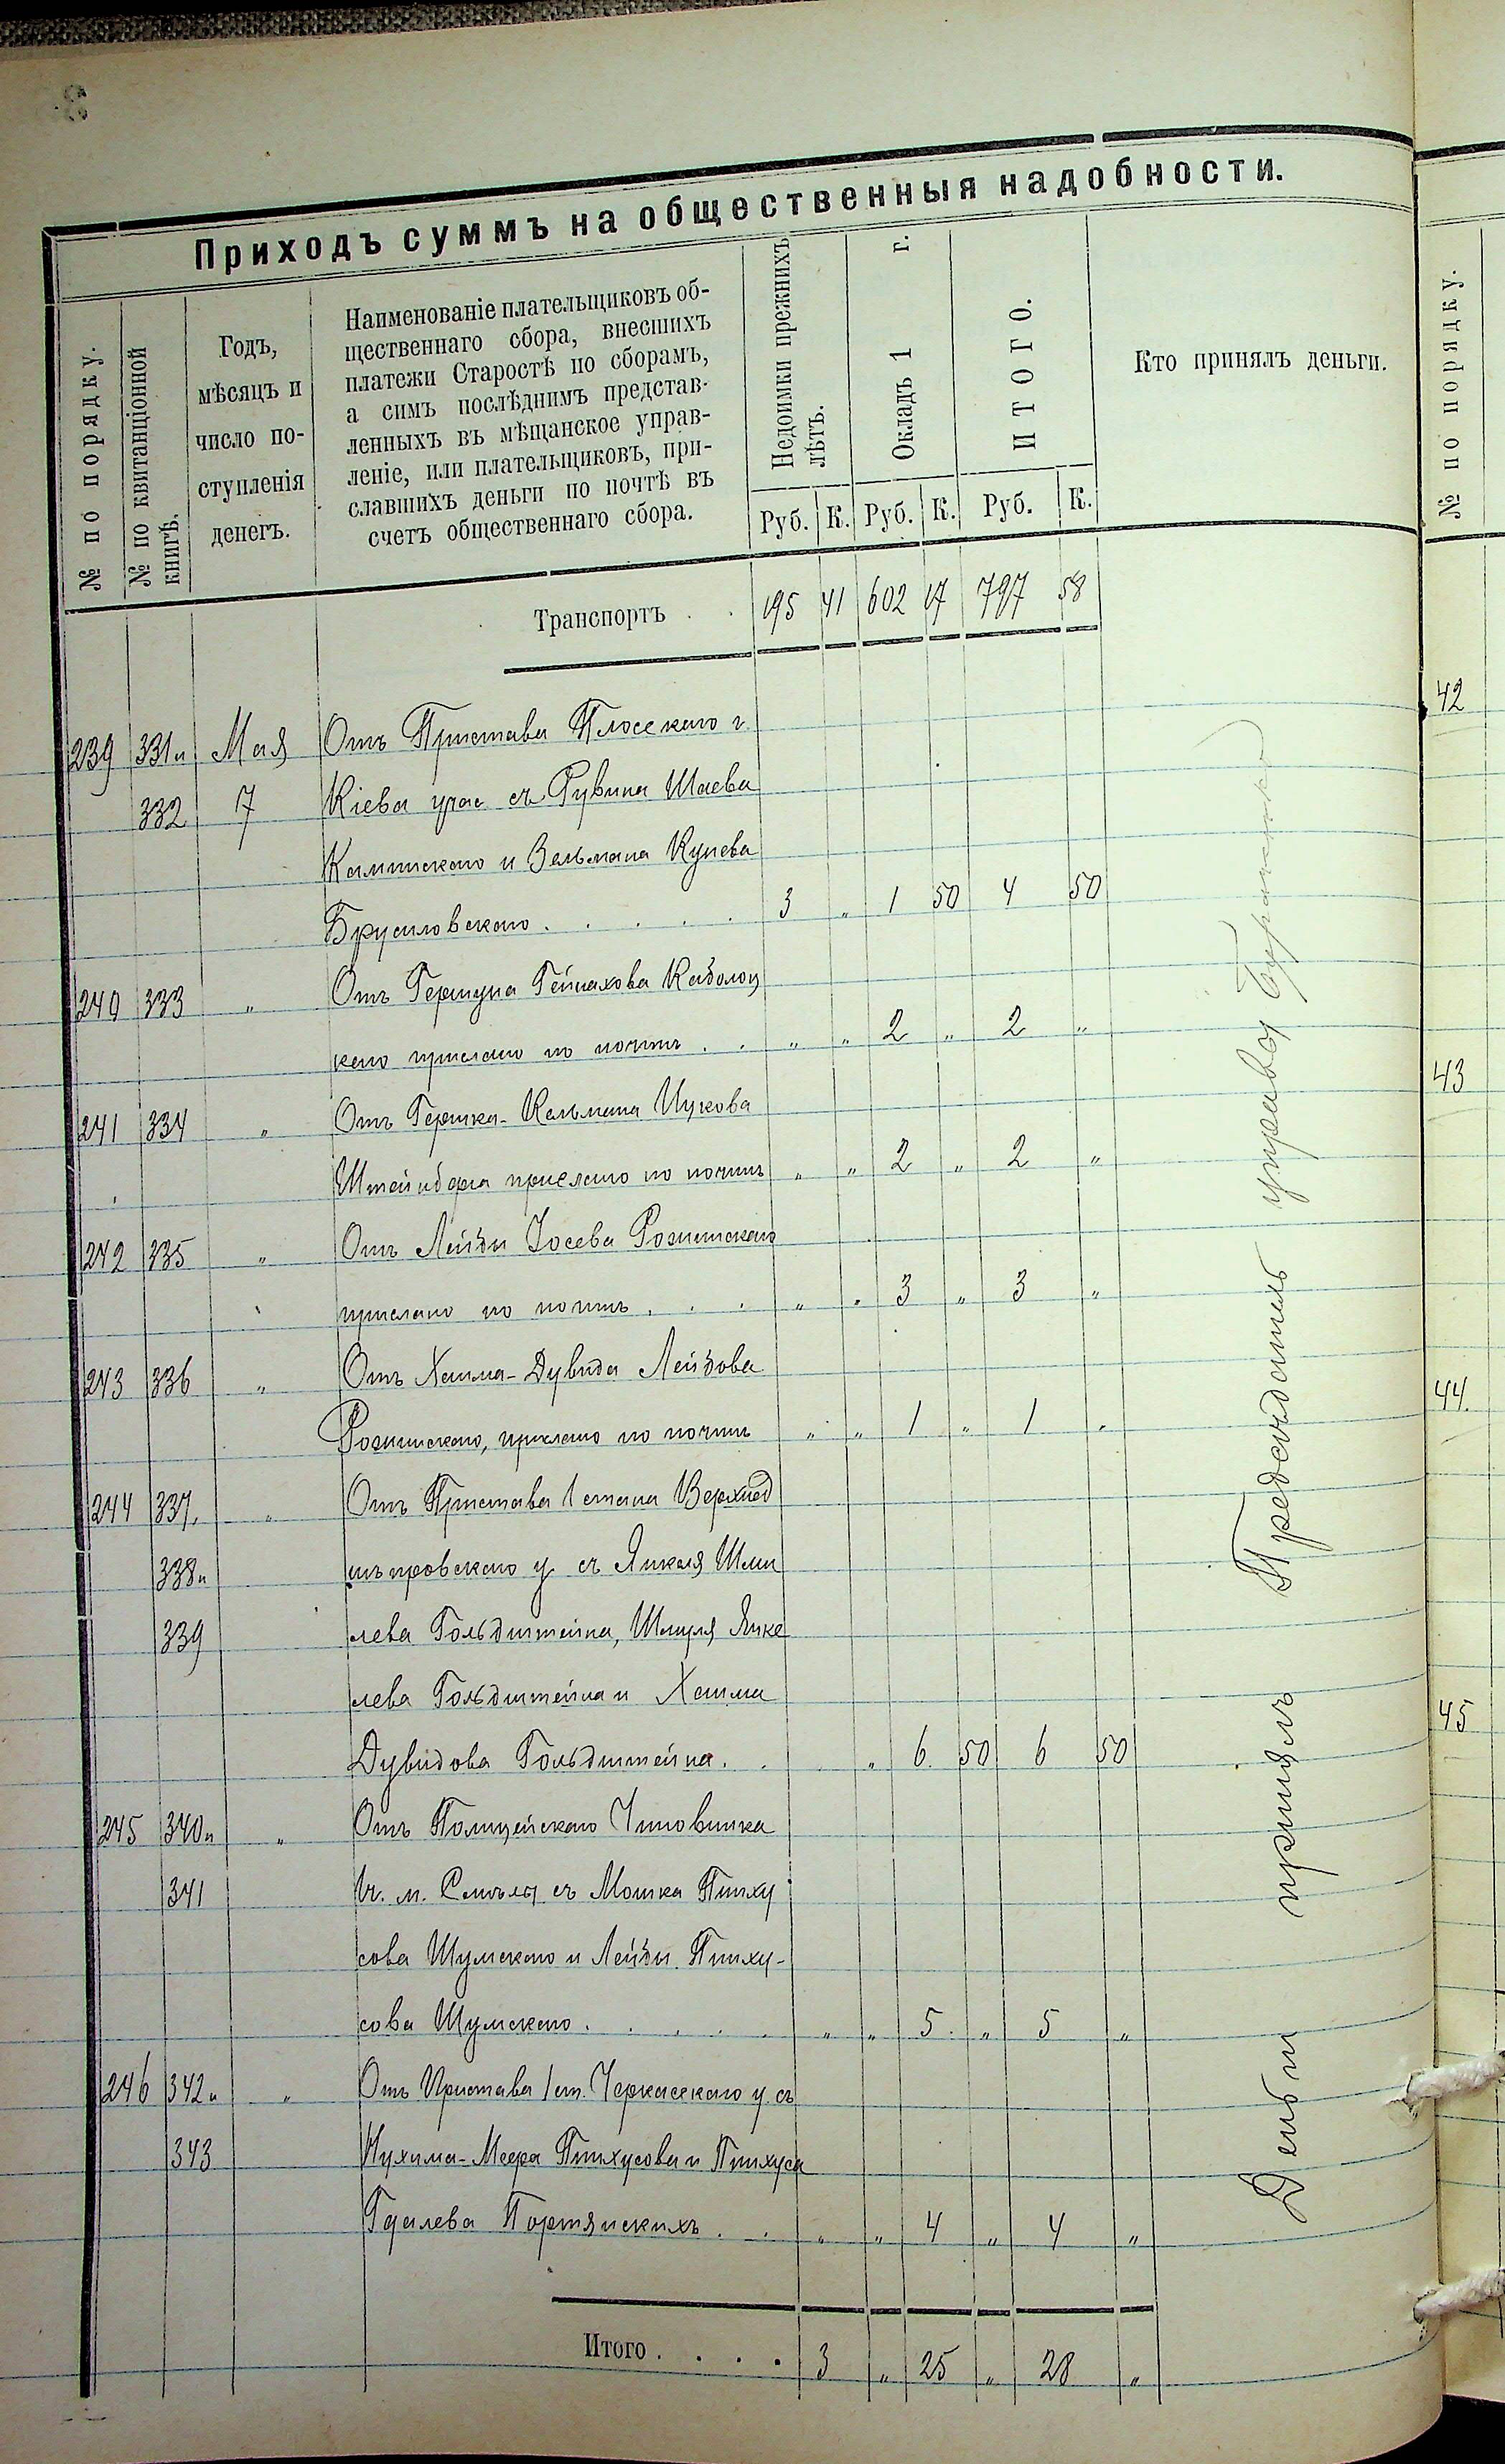 Приходъ суммъ на общественныя надобности.
№ по порядку.
№ по квитанціонной книгѣ.
Годъ, мѣсяцъ и число поступленія денегъ.
Наименованіе плательщиковъ об-
щественнаго сбора, внесшихъ
платежи Старостѣ по сборамъ,
а симъ послѣднимъ представ-
ленныхъ въ мѣщанское управ-
леніе, или плательщиковъ, при-
славшихъ деньги по почтѣ въ
счетъ общественнаго сбора.
Недоимки прежнихъ лѣтъ.
Окладъ 1 г.
ИТОГО.
Кто принялъ деньги.
Руб. К. Руб. К. Руб. К.
Транспортъ . . 195 41 602 17 797 58
239 331 и Мая Отъ Пристава Плоскаго г.
332 7 Кіева учас съ Рувина Шаева
Каминскаго и Зельмана Кунева
Брусиловскаго . . . . . 3 " 1 50 4 50
240 333 " Отъ Гершуна Гейнахова
каго прислано по почтѣ . . " " 2 " 2 "
241 334 " Отъ Гершка-Кельмана Ицкова
Штейнберга прислано по почтѣ " " 2 " 2 "
242 335 " Отъ Лейзи Іосева Рогинскаго
прислано по почтѣ . . . " " 3 " 3 "
243 336 " Отъ Хаима-Дувида Лейзова
Рогинскаго, прислано по почтѣ " " 1 " 1 "
244 337, " Отъ Пристава 1 стана Верхнед
338 и нѣпровскаго у съ Янкеля Шми
339 лева Гольдштейна, Шмуля Янке
лева Гольдштейна и Хаима
Дувидова Гольдштейна . . " 6 50 6 50
245 340 и " Отъ Полицейскаго Чиновника
341 1 ч. м. Смѣлы съ Мошка Пинху
сова Шумскаго и Лейзи Пинху-
сова Шумскаго . . . . . " " 5 " 5 "
246 342 и " Отъ Пристава 1 ст. Черкасскаго у. съ
343 Нухима-Меера Пинхусова и Пинхуса
Гдалева Портянскихъ . . " " 4 " 4 "
Итого . . . . 3 " 25 " 28 "
Деньги принялъ Предсѣдатель управы
№ по порядку.
42
43
44.
45